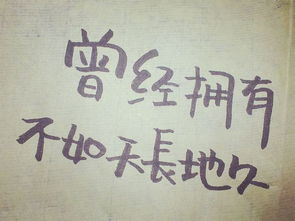 曾经拥有
不如天長地久